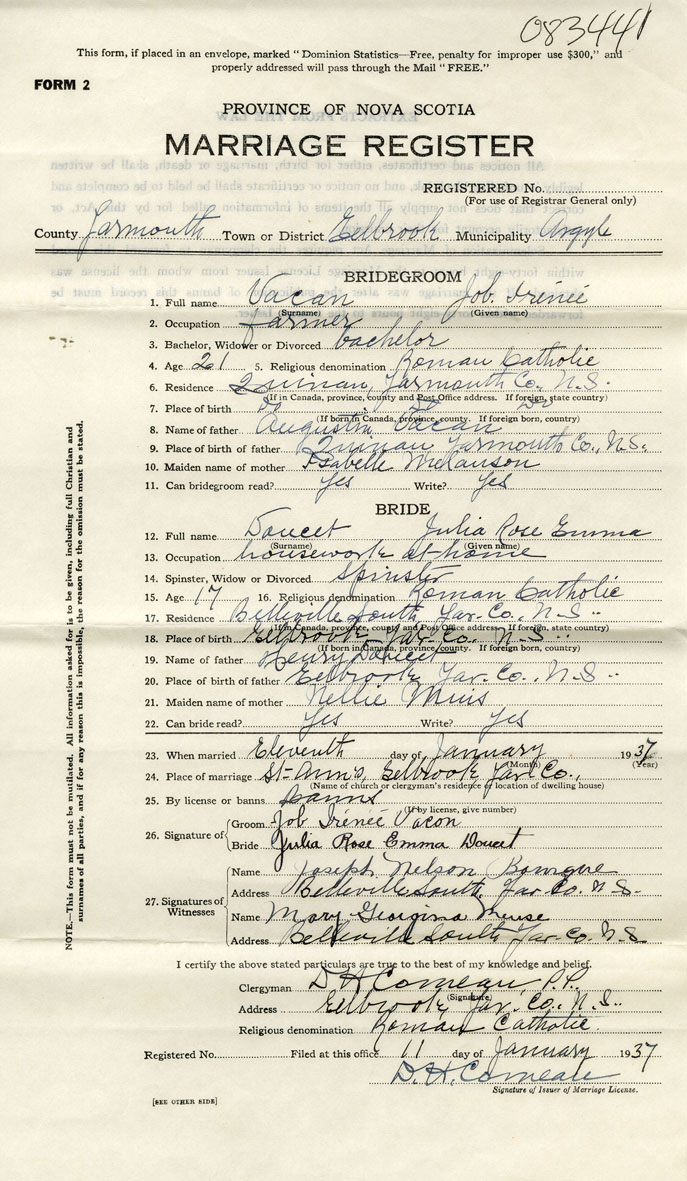 083441
This form, if placed in an envelope, marked "Dominion Statistics—Free, penalty for improper use $300," and
properly addressed will pass through the Mail "FREE."
FORM 2
PROVINCE OF NOVA SCOTIA
MARRIAGE REGISTER
REGISTERED No.
(For use of Registrar General only)
County Yarmouth Town or District Eelbrook Municipality Argyle
BRIDEGROOM
1. Full name Vacan Job Irénée
(Surname) (Given name)
2. Occupation farmer
3. Bachelor, Widower or Divorced bachelor
4. Age 21 5. Religious denomination Roman Catholic
6. Residence Quinan, Yarmouth Co., N.S.
(If in Canada, province, county and Post Office address. If foreign, state country)
7. Place of birth Do Do Do
(If born in Canada, province, county. If foreign born, country)
8. Name of father Augustin Vacan
9. Place of birth of father Quinan Yarmouth Co., N.S.
10. Maiden name of mother Isabelle Melanson
11. Can bridegroom read? Yes Write? Yes
BRIDE
12. Full name Doucet Julia Rose Emma
(Surname) (Given name)
13. Occupation housework at home
14. Spinster, Widow or Divorced Spinster
15. Age 17 16. Religious denomination Roman Catholic
17. Residence Belleville South, Yar. Co., N.S.
(If in Canada, province, county and Post Office address. If foreign, state country)
18. Place of birth Eelbrook, Yar. Co., N.S.
(If born in Canada, province, county. If foreign born, country)
19. Name of father Henry Doucet
20. Place of birth of father Eelbrook, Yar. Co., N.S.
21. Maiden name of mother Nellie Muis
22. Can bride read? Yes Write? Yes
23. When married Eleventh day of January 1937
(Month) (Year)
24. Place of marriage St-Ann's, Eelbrook, Yar. Co.,
(Name of church or clergyman's residence or location of dwelling house)
25. By license or banns banns
(If by license, give number)
26. Signature of Groom Job Irénée Vacon
Bride Julia Rose Emma Doucet
27. Signatures of Witnesses
Name Joseph Nelson Bourque
Address Belleville South, Yar. Co. N.S.
Name Mary Georgina Meuse
Address Belleville South Yar. Co. N.S.
I certify the above stated particulars are true to the best of my knowledge and belief.
Clergyman D H Comeau, P.P.
(Signature)
Address Eelbrook, Yar. Co., N.S.
Religious denomination Roman Catholic
Registered No. Filed at this office 11 day of January 1937
D. H. Comeau
Signature of Issuer of Marriage License.
[SEE OTHER SIDE]
NOTE.—This form must not be mutilated. All information asked for is to be given, including full Christian and
surnames of all parties, and if for any reason this is impossible, the reason for the omission must be stated.